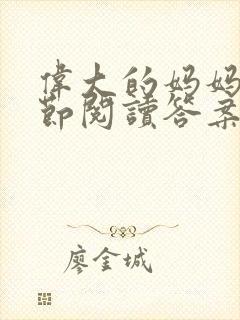 偉大的妈妈
節閱讀答案
廖金城